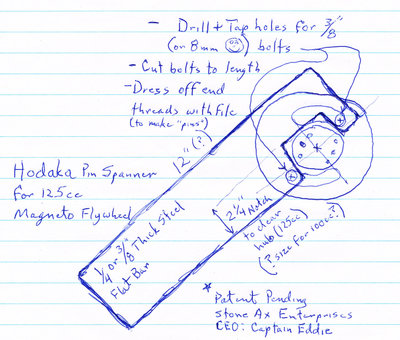 - Drill & Tap holes for 3/8"
(or 8mm) bolts
- Cut bolts to length
- Dress off end
threads with file
(to make "pins")
Hodaka Pin Spanner
for 125cc
Magneto Flywheel
12" (?)
1/4 or 3/8" Thick Steel
Flat Bar
2 1/4" Notch
to clear
hub (125cc)
(? size for 100cc?)
* Patent Pending
Stone Ax Enterprises
CEO: Captain Eddie